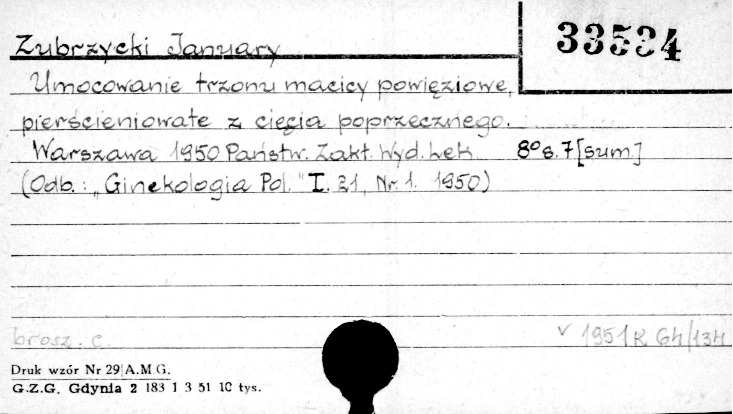 33534
Zubrzycki January
Umocowanie trzonu macicy powięziowe,
pierścieniowate z cięcia poprzecznego.
Warszawa 1950 Państw. Zakł. Wyd. Lek 8° s. 7 [sum.]
(Odb.: „Ginekologia Pol." T. 21, Nr 1. 1950)
brosz. c. v 1951 R 64/134
Druk wzór Nr 29|A.M.G.
G.Z.G. Gdynia 2 183 1 3 51 10 tys.